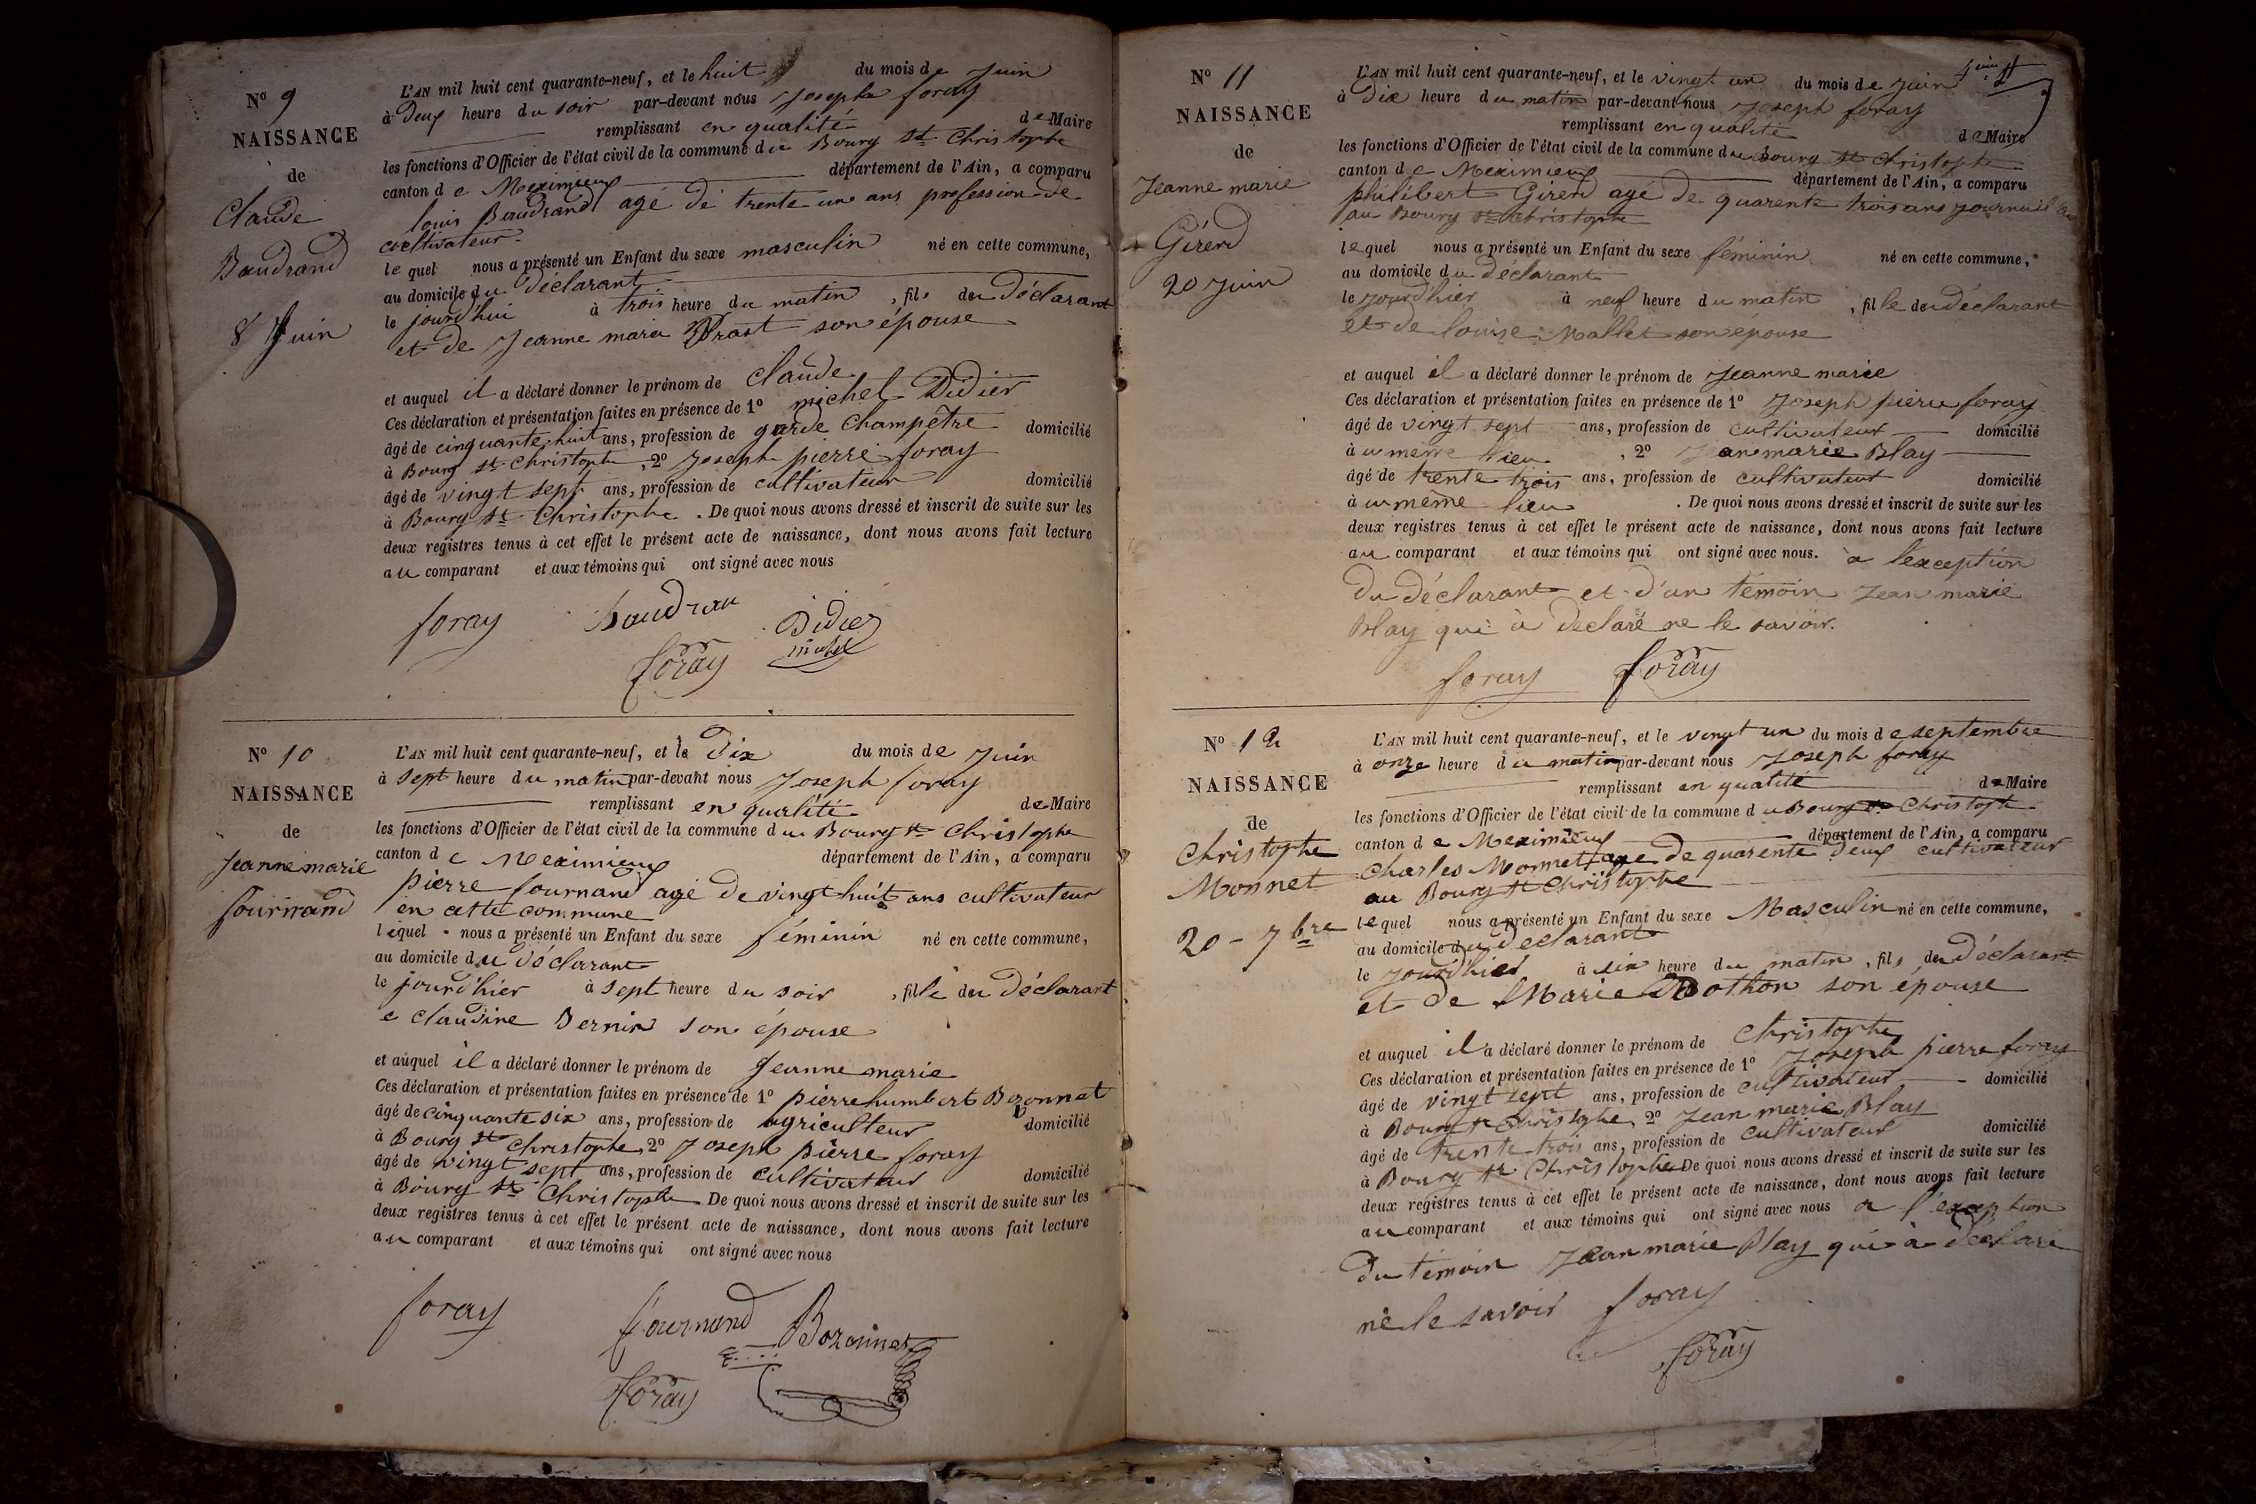 N° 9
NAISSANCE
de
Claude
Baudrand
8 Juin
L'AN mil huit cent quarante-neuf, et le huit du mois de Juin
à Deux heure du soir par-devant nous Joseph foray
remplissant en qualité de Maire
les fonctions d'Officier de l'état civil de la commune du Bourg St Christophe
canton de Meximieux département de l'Ain, a comparu
louis Baudrand agé de trente un ans profession de
cultivateur
lequel nous a présenté un Enfant du sexe masculin né en cette commune,
au domicile du Déclarant
le jourd'hui à trois heure du matin, fils du Déclarant
et de Jeanne marie son épouse
et auquel il a déclaré donner le prénom de Claude
Ces déclaration et présentation faites en présence de 1° michel Didier
âgé de cinquante huit ans, profession de garde Champêtre domicilié
à Bourg St Christophe, 2° Joseph pierre foray
âgé de vingt sept ans, profession de cultivateur domicilié
à Bourg St Christophe. De quoi nous avons dressé et inscrit de suite sur les
deux registres tenus à cet effet le présent acte de naissance, dont nous avons fait lecture
au comparant et aux témoins qui ont signé avec nous
foray Baudran Didier
michel
foray
N° 10
NAISSANCE
de
Jeanne marie
fournand
L'AN mil huit cent quarante-neuf, et le Dix du mois de Juin
à sept heure du matin par-devant nous Joseph foray
remplissant en qualité de Maire
les fonctions d'Officier de l'état civil de la commune du Bourg St Christophe
canton de Meximieux département de l'Ain, a comparu
pierre fournand agé de vingt huit ans cultivateur
en cette commune
lequel nous a présenté un Enfant du sexe féminin né en cette commune,
au domicile du déclarant
le jourd'hier à sept heure du soir, fille du Déclarant
e Claudine Bernin son épouse
et auquel il a déclaré donner le prénom de Jeanne marie
Ces déclaration et présentation faites en présence de 1° pierre humbert Bozonnet
âgé de cinquante six ans, profession de agriculteur domicilié
à Bourg St Christophe, 2° Joseph pierre foray
âgé de vingt sept ans, profession de cultivateur domicilié
à Bourg St Christophe De quoi nous avons dressé et inscrit de suite sur les
deux registres tenus à cet effet le présent acte de naissance, dont nous avons fait lecture
au comparant et aux témoins qui ont signé avec nous
foray fournand Bozonnet
foray
N° 11
NAISSANCE
de
Jeanne marie
Girerd
20 Juin
L'AN mil huit cent quarante-neuf, et le vingt un du mois de Juin
à Dix heure du matin par-devant nous Joseph foray
remplissant en qualité de Maire
les fonctions d'Officier de l'état civil de la commune du Bourg St Christophe
canton de Meximieux département de l'Ain, a comparu
philibert Girerd agé de quarente trois ans
au Bourg St Christophe
lequel nous a présenté un Enfant du sexe féminin né en cette commune,
au domicile du déclarant
le jourd'hier à neuf heure du matin, fille du déclarant
et de louise Mallet son épouse
et auquel il a déclaré donner le prénom de Jeanne marie
Ces déclaration et présentation faites en présence de 1° Joseph pierre foray
âgé de vingt sept ans, profession de cultivateur domicilié
à u même lieu, 2° Jean marie Blay
âgé de trente trois ans, profession de cultivateur domicilié
à u même lieu. De quoi nous avons dressé et inscrit de suite sur les
deux registres tenus à cet effet le présent acte de naissance, dont nous avons fait lecture
au comparant et aux témoins qui ont signé avec nous. à l'exception
du déclarant et d'un témoin Jean marie
Blay qui à declaré ne le savoir.
foray foray
N° 12
NAISSANCE
de
Christophe
Monnet
20 - 7bre
L'AN mil huit cent quarante-neuf, et le vingt un du mois de septembre
à onze heure du matin par-devant nous Joseph foray
remplissant en qualité de Maire
les fonctions d'Officier de l'état civil de la commune du Bourg St Christophe
canton de Meximieux département de l'Ain, a comparu
Charles Monnet age de quarente deux cultivateur
au Bourg St Christophe
lequel nous a présenté un Enfant du sexe Masculin né en cette commune,
au domicile du declarant
le jourd'hier à six heure du matin, fils du Déclarant
et de Marie Dothon son épouse
et auquel il a déclaré donner le prénom de Christophe
Ces déclaration et présentation faites en présence de 1° Joseph pierre foray
âgé de vingt sept ans, profession de cultivateur domicilié
à Bourg St Christophe 2° Jean marie Blay
âgé de trente trois ans, profession de cultivateur domicilié
à Bourg St Christophe De quoi nous avons dressé et inscrit de suite sur les
deux registres tenus à cet effet le présent acte de naissance, dont nous avons fait lecture
au comparant et aux témoins qui ont signé avec nous a l'exception
du témoin Jean marie Blay qui à déclaré
ne le savoir foray
foray